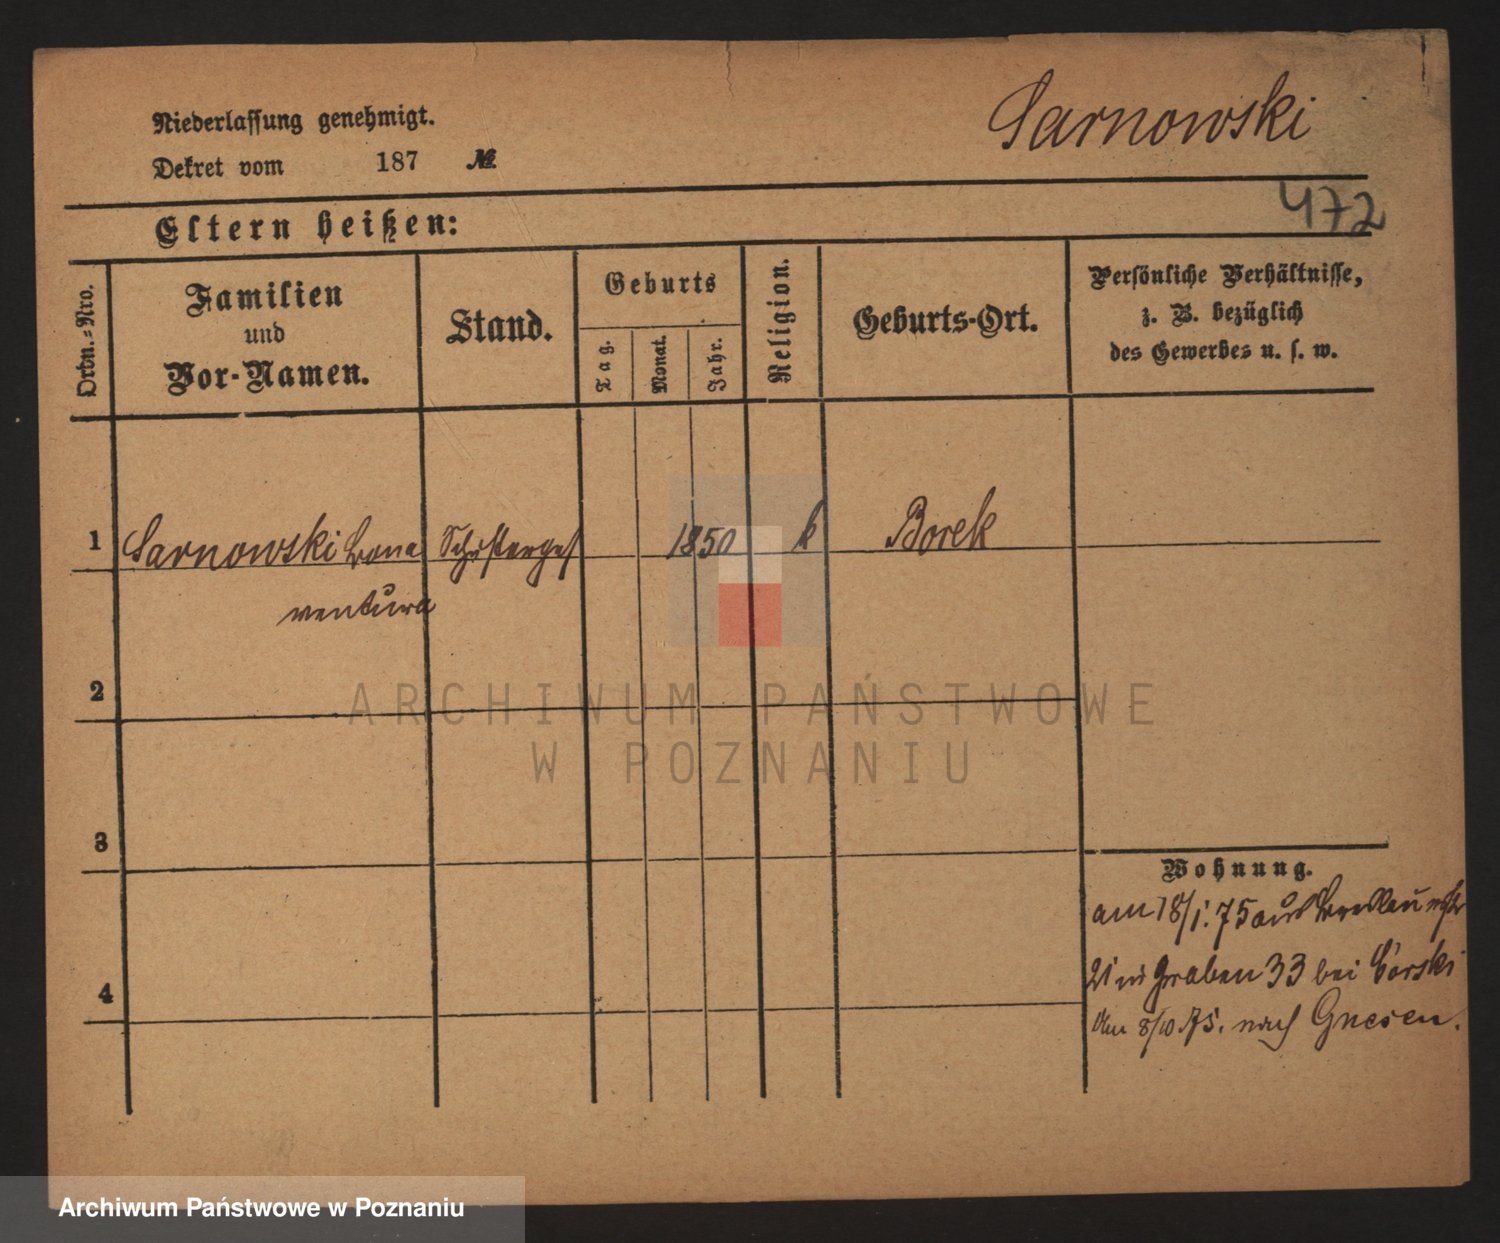 Sarnowski
Niederlassung genehmigt.
Dekret vom 187 №
472
Eltern heißen:
Ordn.-Nro.
Familien
und
Vor-Namen.
Stand.
Geburts
Tag.
Monat.
Jahr.
Religion.
Geburts-Ort.
Persönliche Verhältnisse,
z. B. bezüglich
des Gewerbes u. s. w.
1 Sarnowski Bona Schusterges 1850 k Borek
ventura
2
3
4
Wohnung.
am 18/1. 75 aus Breslau
Graben 33 bei Górski
Am 8/10 75. nach Gnesen.
ARCHIWUM PAŃSTWOWE
W POZNANIU
Archiwum Państwowe w Poznaniu